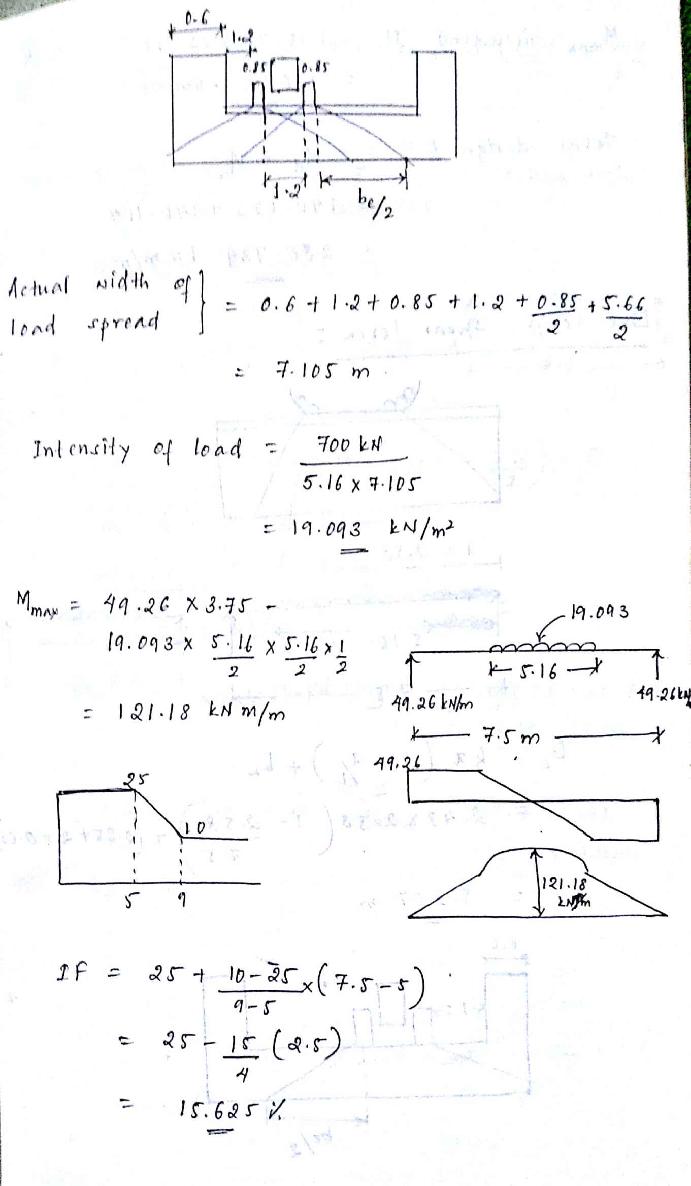 0.6
1.2
0.85 0.85
1.2 be/2
Actual width of load spread } = 0.6 + 1.2 + 0.85 + 1.2 + 0.85/2 + 5.66/2
= 7.105 m
Intensity of load = 700 kN / 5.16 x 7.105
= 19.093 kN/m²
Mmax = 49.26 x 3.75 -
19.093 x 5.16/2 x 5.16/2 x 1/2
= 121.18 kN m/m
19.093
5.16
49.26 kN/m 49.26 kN
7.5 m
49.26
121.18
kN/m
25
10
5 9
IF = 25 + 10-25/9-5 x (7.5-5)
= 25 - 15/4 (2.5)
= 15.625 %